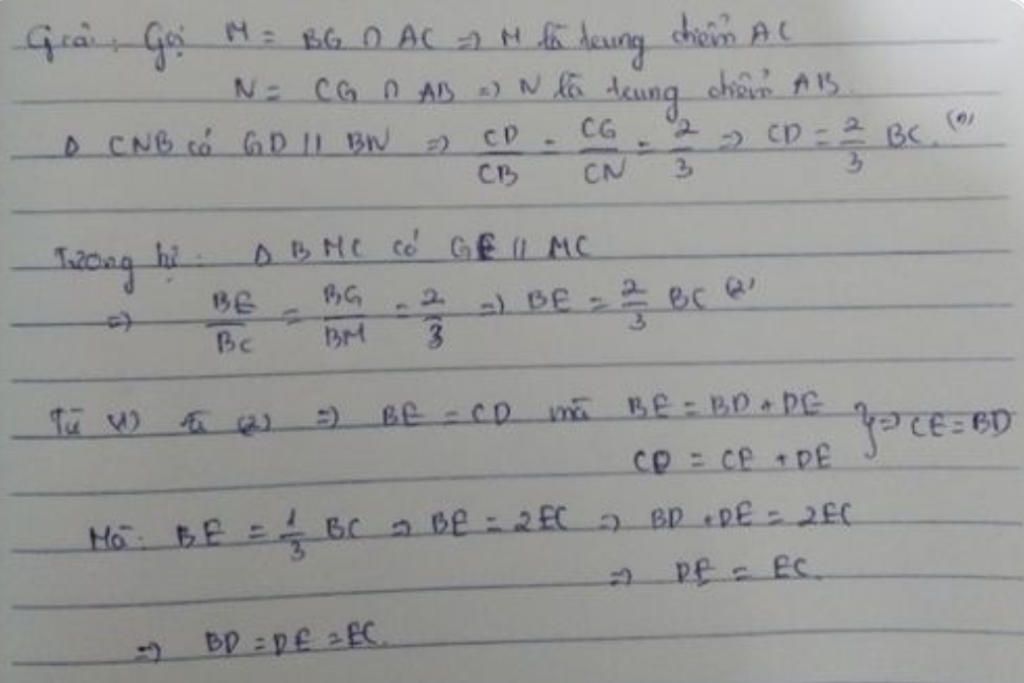 Giải: Gọi M = BG ∩ AC => M là trung điểm AC
N = CG ∩ AB => N là trung điểm AB
Δ CNB có GD // BN => CD/CB = CG/CN = 2/3 => CD = 2/3 BC. (1)
Tương tự: Δ BMC có GE // MC
=> BE/BC = BG/BM = 2/3 => BE = 2/3 BC (2)
Từ (1) và (2) => BE = CD mà BE = BD + DE } => CE = BD
CD = CE + DE
Mà: BE = 1/3 BC => BE = 2EC => BD + DE = 2EC
=> DE = EC.
=> BD = DE = EC.